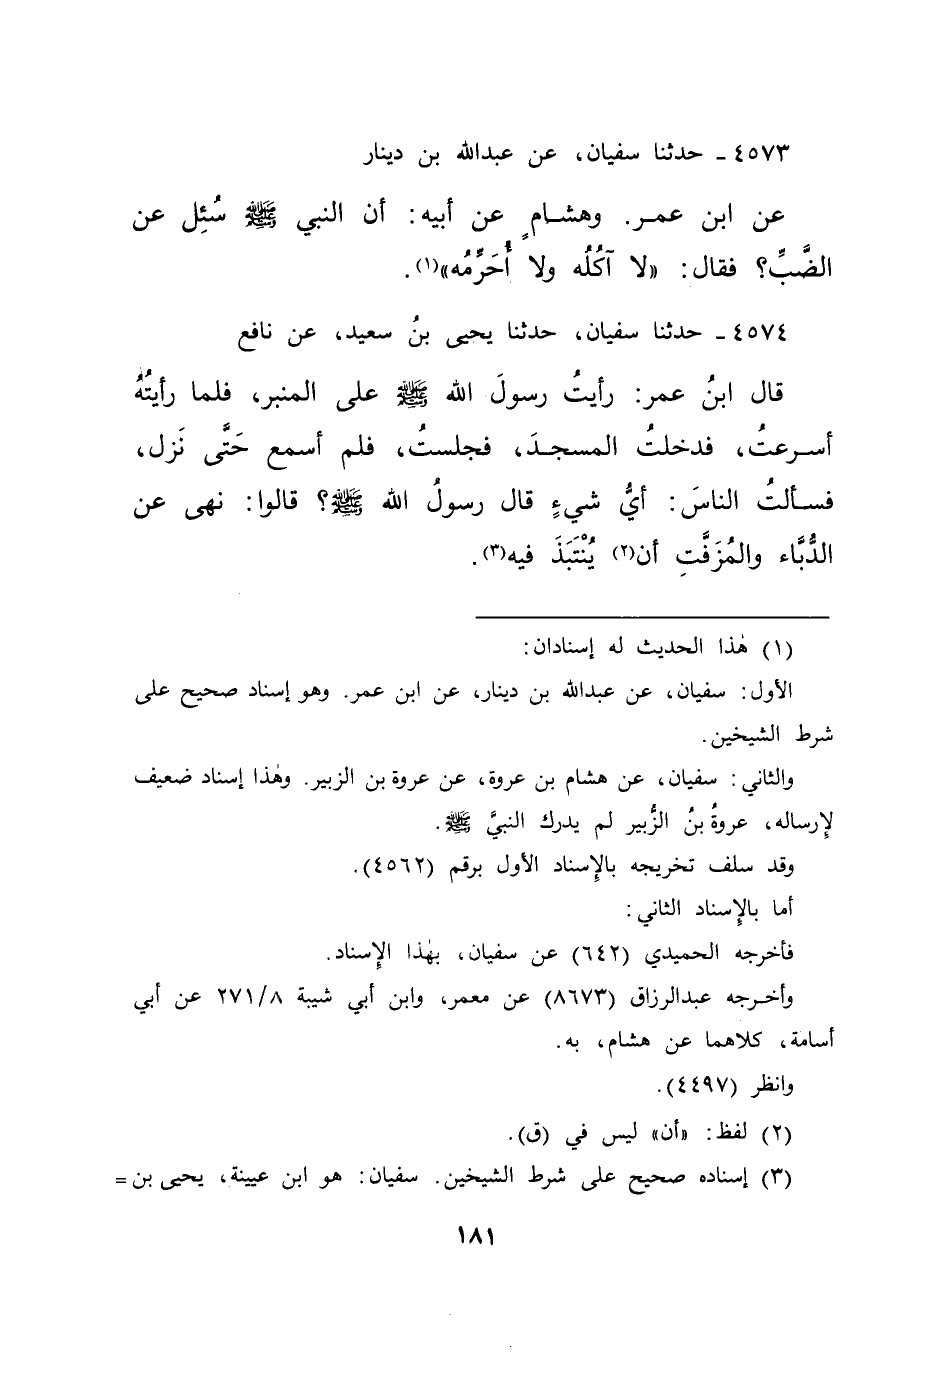 ٤٥٧٣ ـ حدثنا سفيان، عن عبدالله بن دينار
عن ابن عمـر. وهشـامٍ عن أبيه: أن النبي ﷺ سُئِل عن
الضَّبِّ؟ فقال: «لا آكُلُه ولا أُحَرِّمُه»(١).
٤٥٧٤ ـ حدثنا سفيان، حدثنا يحيى بنُ سعيد، عن نافع
قال ابنُ عمر: رأيتُ رسولَ الله ﷺ على المنبر، فلما رأيتُهُ
أسـرعتُ، فدخلتُ المسجـدَ، فجلستُ، فلم أسمع حَتَّى نَزل،
فسـألتُ الناسَ: أيُّ شيءٍ قال رسولُ الله ﷺ؟ قالوا: نهى عن
الدُّبَّاء والمُزَفَّتِ أن(٢) يُنْتَبَذَ فيه(٣).
(١) هٰذا الحديث له إسنادان:
الأول: سفيان، عن عبدالله بن دينار، عن ابن عمر. وهو إسناد صحيح على
شرط الشيخين.
والثاني: سفيان، عن هشام بن عروة، عن عروة بن الزبير. وهٰذا إسناد ضعيف
لإرساله، عروةُ بنُ الزُّبير لم يدرك النبيَّ ﷺ.
وقد سلف تخريجه بالإسناد الأول برقم (٤٥٦٢).
أما بالإسناد الثاني:
فأخرجه الحميدي (٦٤٢) عن سفيان، بهٰذا الإسناد.
وأخـرجه عبدالرزاق (٨٦٧٣) عن معمر، وابن أبي شيبة ٢٧١/٨ عن أبي
أسامة، كلاهما عن هشام، به.
وانظر (٤٤٩٧).
(٢) لفظ: «أن» ليس في (ق).
(٣) إسناده صحيح على شرط الشيخين. سفيان: هو ابن عيينة، يحيى بن =
١٨١